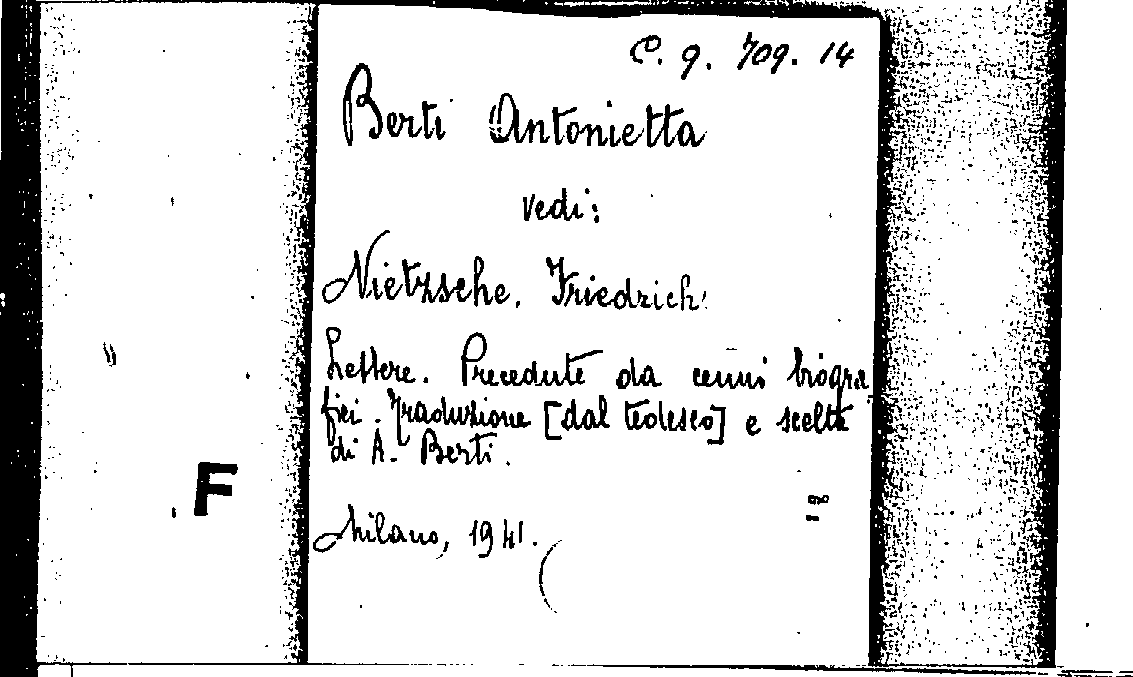 C. 9. 709. 14
Berti Antonietta
vedi:
Nietzsche. Friedrich
Lettere. Precedute da cenni biogra
fici. Traduzione [dal tedesco] e scelta
di A. Berti.
F
Milano, 1941.